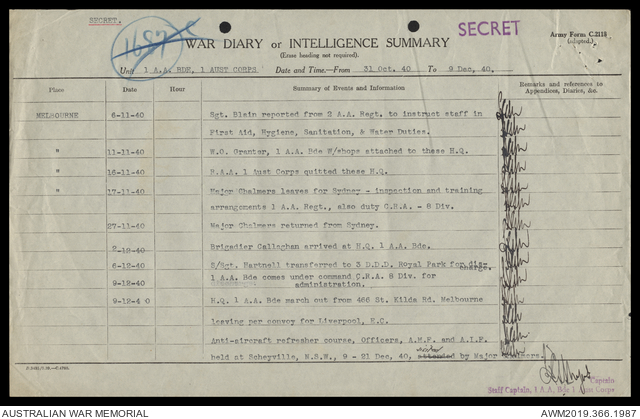 SECRET.
SECRET
Army Form C.2118
(adapted.)
1687
WAR DIARY or INTELLIGENCE SUMMARY
(Erase heading not required).
Unit 1 A.A. BDE, 1 AUST CORPS Date and Time.—From 31 Oct. 40 To 9 Dec, 40.
Place Date Hour Summary of Events and Information Remarks and references to
Appendices, Diaries, &c.
MELBOURNE 6-11-40 Sgt. Blain reported from 2 A.A. Regt. to instruct staff in
First Aid, Hygiene, Sanitation, & Water Duties.
" 11-11-40 W.O. Granter, 1 A.A. Bde W/shops attached to these H.Q.
" 16-11-40 R.A.A. 1 Aust Corps quitted these H.Q.
" 17-11-40 Major Chalmers leaves for Sydney - inspection and training
arrangements 1 A.A. Regt., also duty C.R.A. - 8 Div.
27-11-40 Major Chalmers returned from Sydney.
2-12-40 Brigadier Callaghan arrived at H.Q. 1 A.A. Bde.
6-12-40 S/Sgt. Hartnell transferred to 3 D.D.D. Royal Park for dis-
charge.
9-12-40 1 A.A. Bde comes under command C.R.A. 8 Div. for
administration.
9-12-4 0 H.Q. 1 A.A. Bde march out from 466 St. Kilda Rd. Melbourne
leaving per convoy for Liverpool, E.C.
Anti-aircraft refresher course, Officers, A.M.F. and A.I.F.
held at Scheyville, N.S.W., 9 - 21 Dec, 40, attended by Major Chalmers.
Captain
Staff Captain, 1 A.A. Bde 1 Aust Corps
AUSTRALIAN WAR MEMORIAL
AWM2019.366.1987